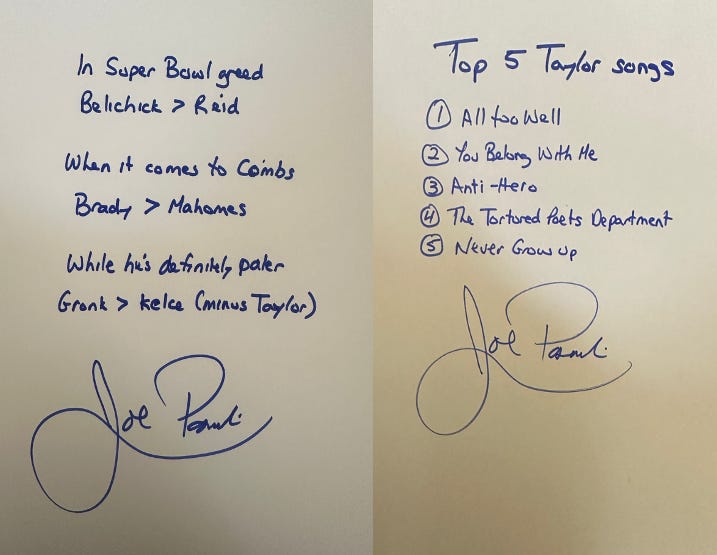 In Super Bowl greed
Belichick > Reid
When it comes to Coimbs
Brady > Mahomes
While he's definitely paler
Gronk > Kelce (minus Taylor)
Joe
Top 5 Taylor songs
① All too Well
② You Belong With Me
③ Anti-Hero
④ The Tortured Poets Department
⑤ Never Grow up
Joe